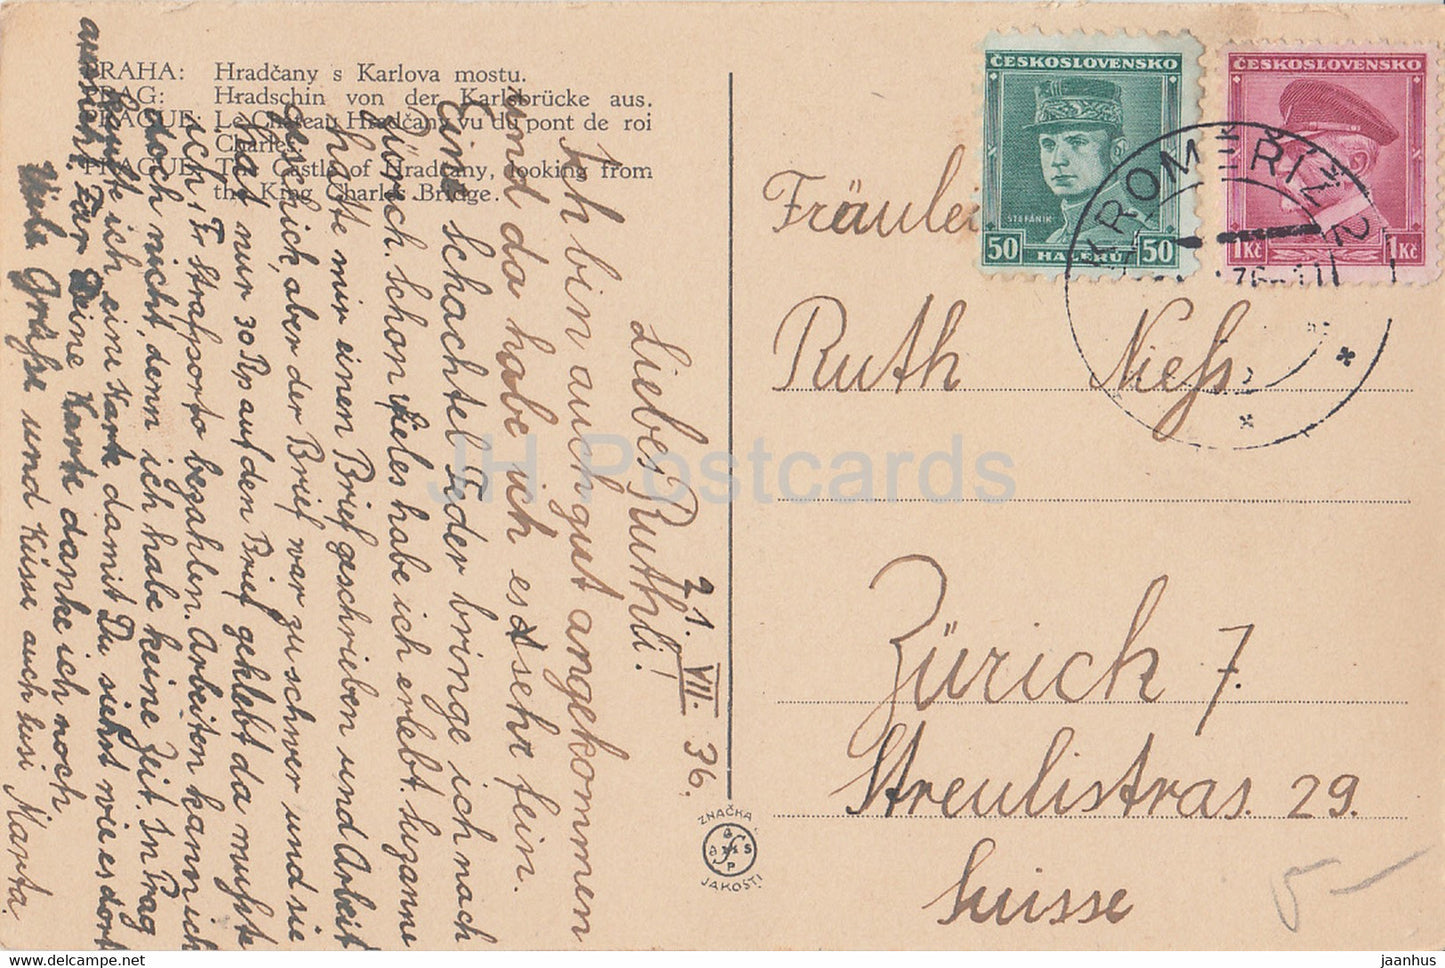 PRAHA: Hradčany s Karlova mostu.
PRAG: Hradschin von der Karlsbrücke aus.
PRAGUE: Le Château Hradčany vu du pont de roi
Charles.
PRAGUE: The Castle of Hradčany, looking from
the King Charles Bridge.
21. VII. 36.
Liebes Ruthli!
Ich bin auch gut angekommen
und da habe ich es sehr fein.
Eine Schachtel Feder bringe ich nach
Zürich. Schon vieles habe ich erlebt. Suzanne
hatte mir einen Brief geschrieben und Arbeit
geschickt, aber der Brief war zu schwer und sie
hat nur 30 Rp auf den Brief geklebt da musste
ich 1 Fr Strafporto bezahlen. Arbeiten kann ich
doch nicht, denn ich habe keine Zeit. In Prag
kaufte ich eine Karte damit Du siehst wie es dort
aussieht. Für Deine Karte danke ich noch.
Viele Grüsse und Küsse auch Susi Marta.
ČESKOSLOVENSKO
ŠTEFÁNIK
50 HALÉŘŮ 50
ČESKOSLOVENSKO
1Kč 1Kč
KROMĚŘÍŽ 2
Fräulei
Ruth Niess
Zürich 7.
Streulistras. 29.
Suisse
ZNAČKA
JAKOSTI
5-
JH Postcards
jaanhus